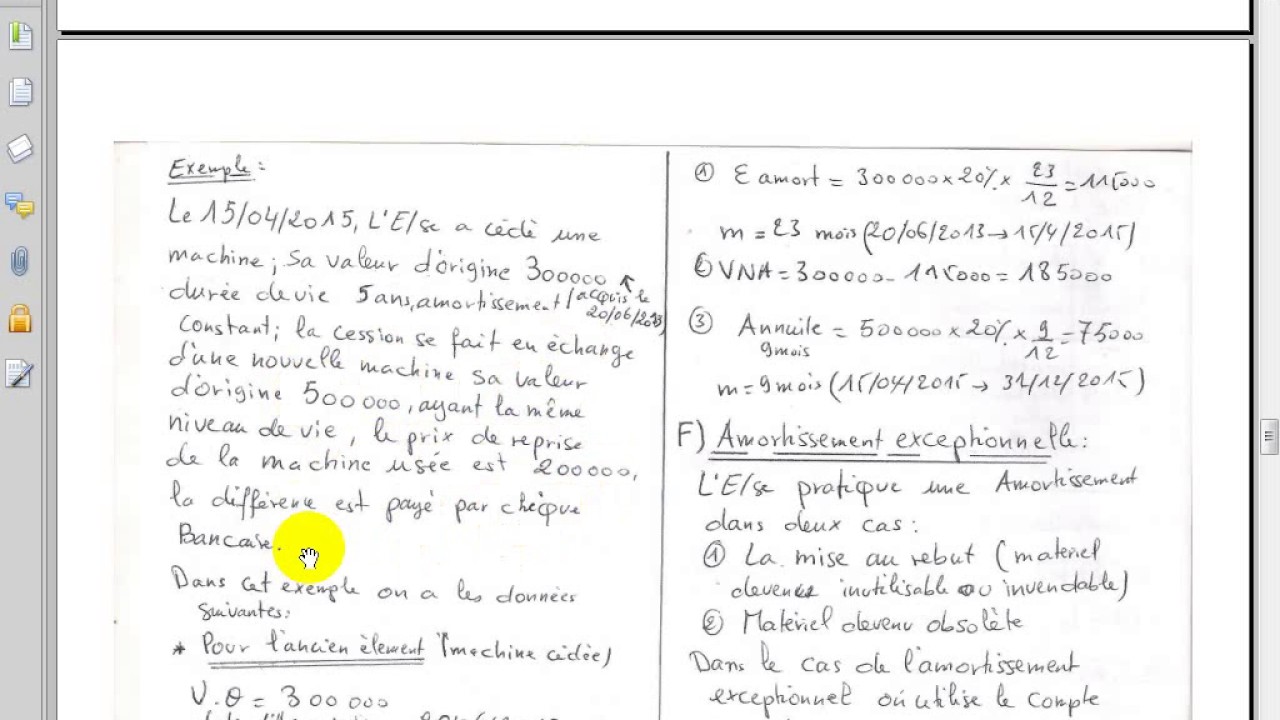 Exemple:
Le 15/04/2015, L'E/se a cèdè une
machine; Sa valeur d'origine 300000
durée de vie 5 ans, amortissement (acquis le
20/06/2013)
Constant; la cession se fait en èchange
d'une nouvelle machine sa valeur
d'origine 500000, ayant la même
niveau de vie, le prix de reprise
de la machine usée est 200000,
la différence est payé par chèque
Bancaire.
Dans cet exemple on a les données
suivantes:
* Pour l'ancien èlement (machine cédée)
V.O = 300 000
① E amort = 300 000 x 20% x 23/12 = 115000
m = 23 mois (20/06/2013 → 15/4/2015)
② VNA = 300000 - 115000 = 185000
③ Annuile = 500000 x 20% x 9/12 = 75000
9mois
m = 9 mois (15/04/2015 → 31/12/2015)
F) Amortissement exceptionnelle:
L'E/se pratique une Amortissement
dans deux cas:
① La mise au rebut (materiel
devenue inutilisable ou invendable)
② Matèriel devenu obsolète
Dans le cas de l'amortissement
exceptionnel où utilise le Compte